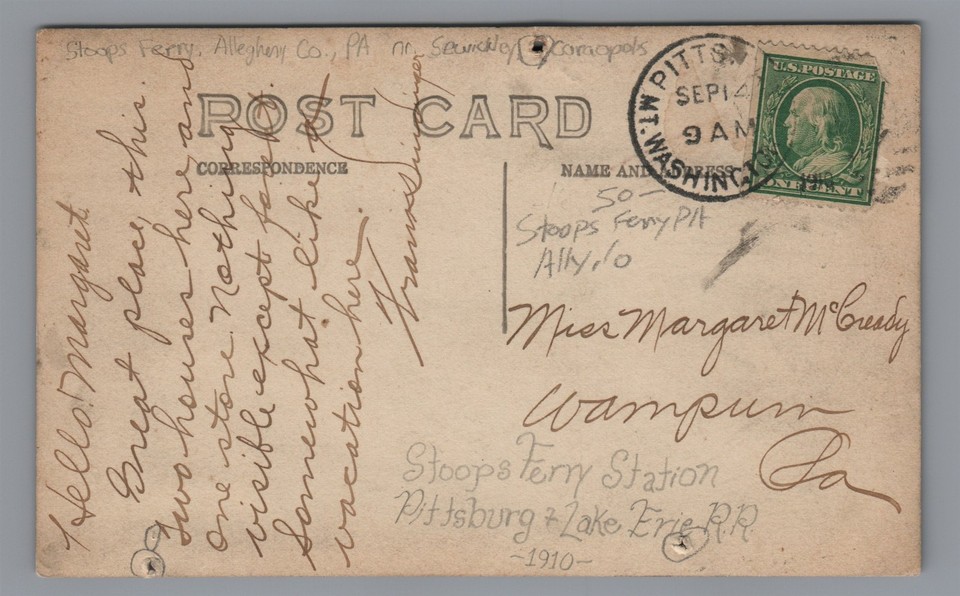 Stoops Ferry, Allegheny Co., PA nr. Sewickley Coraopolis
POST CARD
CORRESPONDENCE
NAME AND ADDRESS
PITTS.
MT. WASHINGTO
SEP 14
9 AM
U.S. POSTAGE
ONE CENT
50-
Stoops Ferry PA
Miss Margaret McCready
Wampum
Pa
Stoops Ferry Station
Pittsburg & Lake Erie R.R.
-1910-
Hello! Margaret
Great place, this.
Two houses here and
one store. Nothing
visible except for
Somewhat like a
vacation here.
Frances